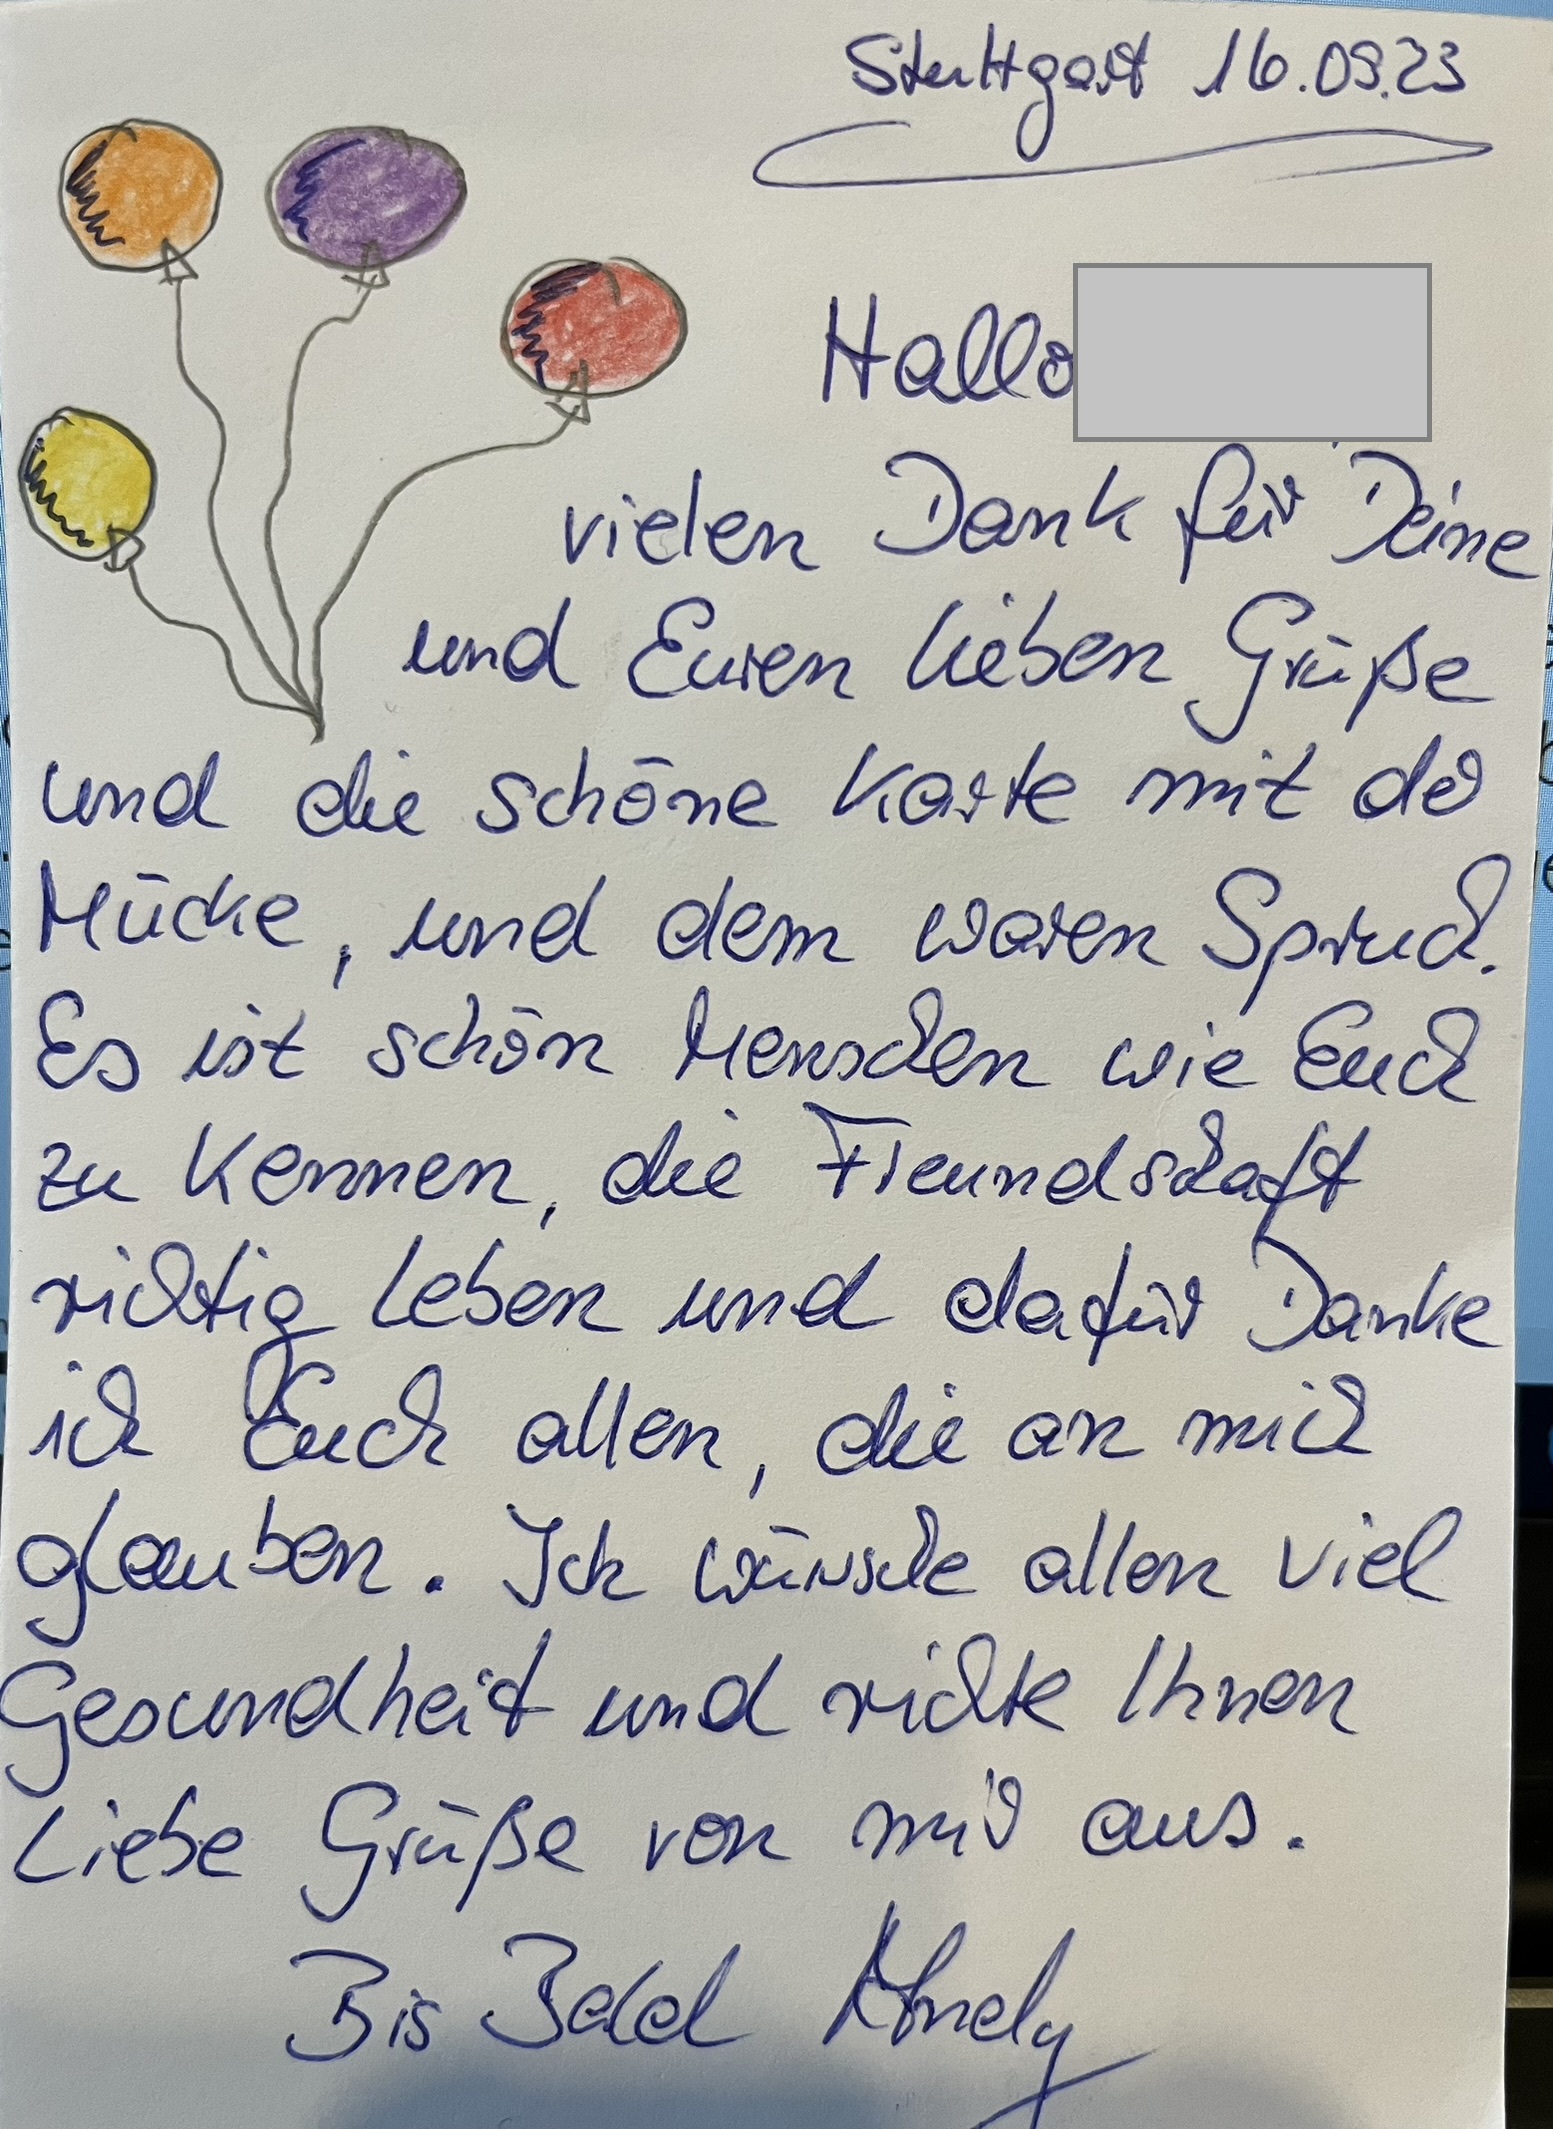 Stuttgart 16.09.23
Hallo
vielen Dank für Deine
und Euren lieben Grüße
und die schöne Karte mit der
Mücke, und dem waren Spruch.
Es ist schön Menschen wie Euch
zu Kennen, die Freundschaft
richtig Leben und dafür Danke
ich Euch allen, die an mich
glauben. Ich wünsche allen viel
Gesundheit und richte Ihnen
Liebe Grüße von mir aus.
Bis Bald